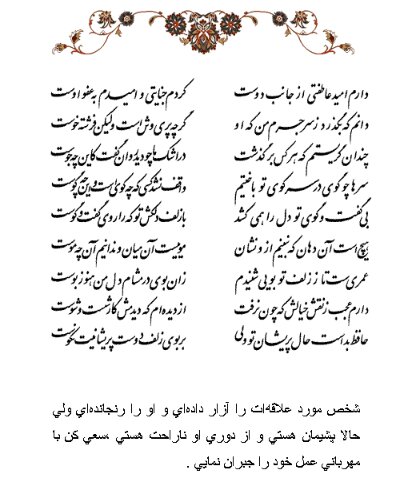 دارم امید عاطفتی از جانب دوست کردم جنایتی و امیدم به عفو اوست
دانم که بگذرد ز سر جرم من که او گرچه پری وش است ولیکن فرشته خوست
چندان گریستیم که هر کس که برگذشت در اشک ما چو دید روان گفت کاین چه جوست
سرها چو گوی در سر کوی تو باختیم واقف نشد کسی که چه گوی است و این چه کوست
بی گفت و گوی تو دل را همی کشد با زلف دلکش تو که را روی گفت و گوست
هیچ است آن دهان که نبینم از او نشان مویست آن میان و ندانم آن چه موست
عمری ست تا ز زلف تو بویی شنیدم زان بوی در مشام دل من هنوز بوست
دارم عجب ز نقش خیالش که چون نرفت از دیده ام که کار شست و شوست
حافظ بد است حال پریشان تو ولی بر بوی زلف دوست پریشانیت نکوست
شخص مورد علاقه‌ات را آزار داده‌اي و او را رنجانده‌اي ولي
حالا پشيمان هستي و از دوري او ناراحت هستي ،سعي کن با
مهرباني عمل خود را جبران نمايي .